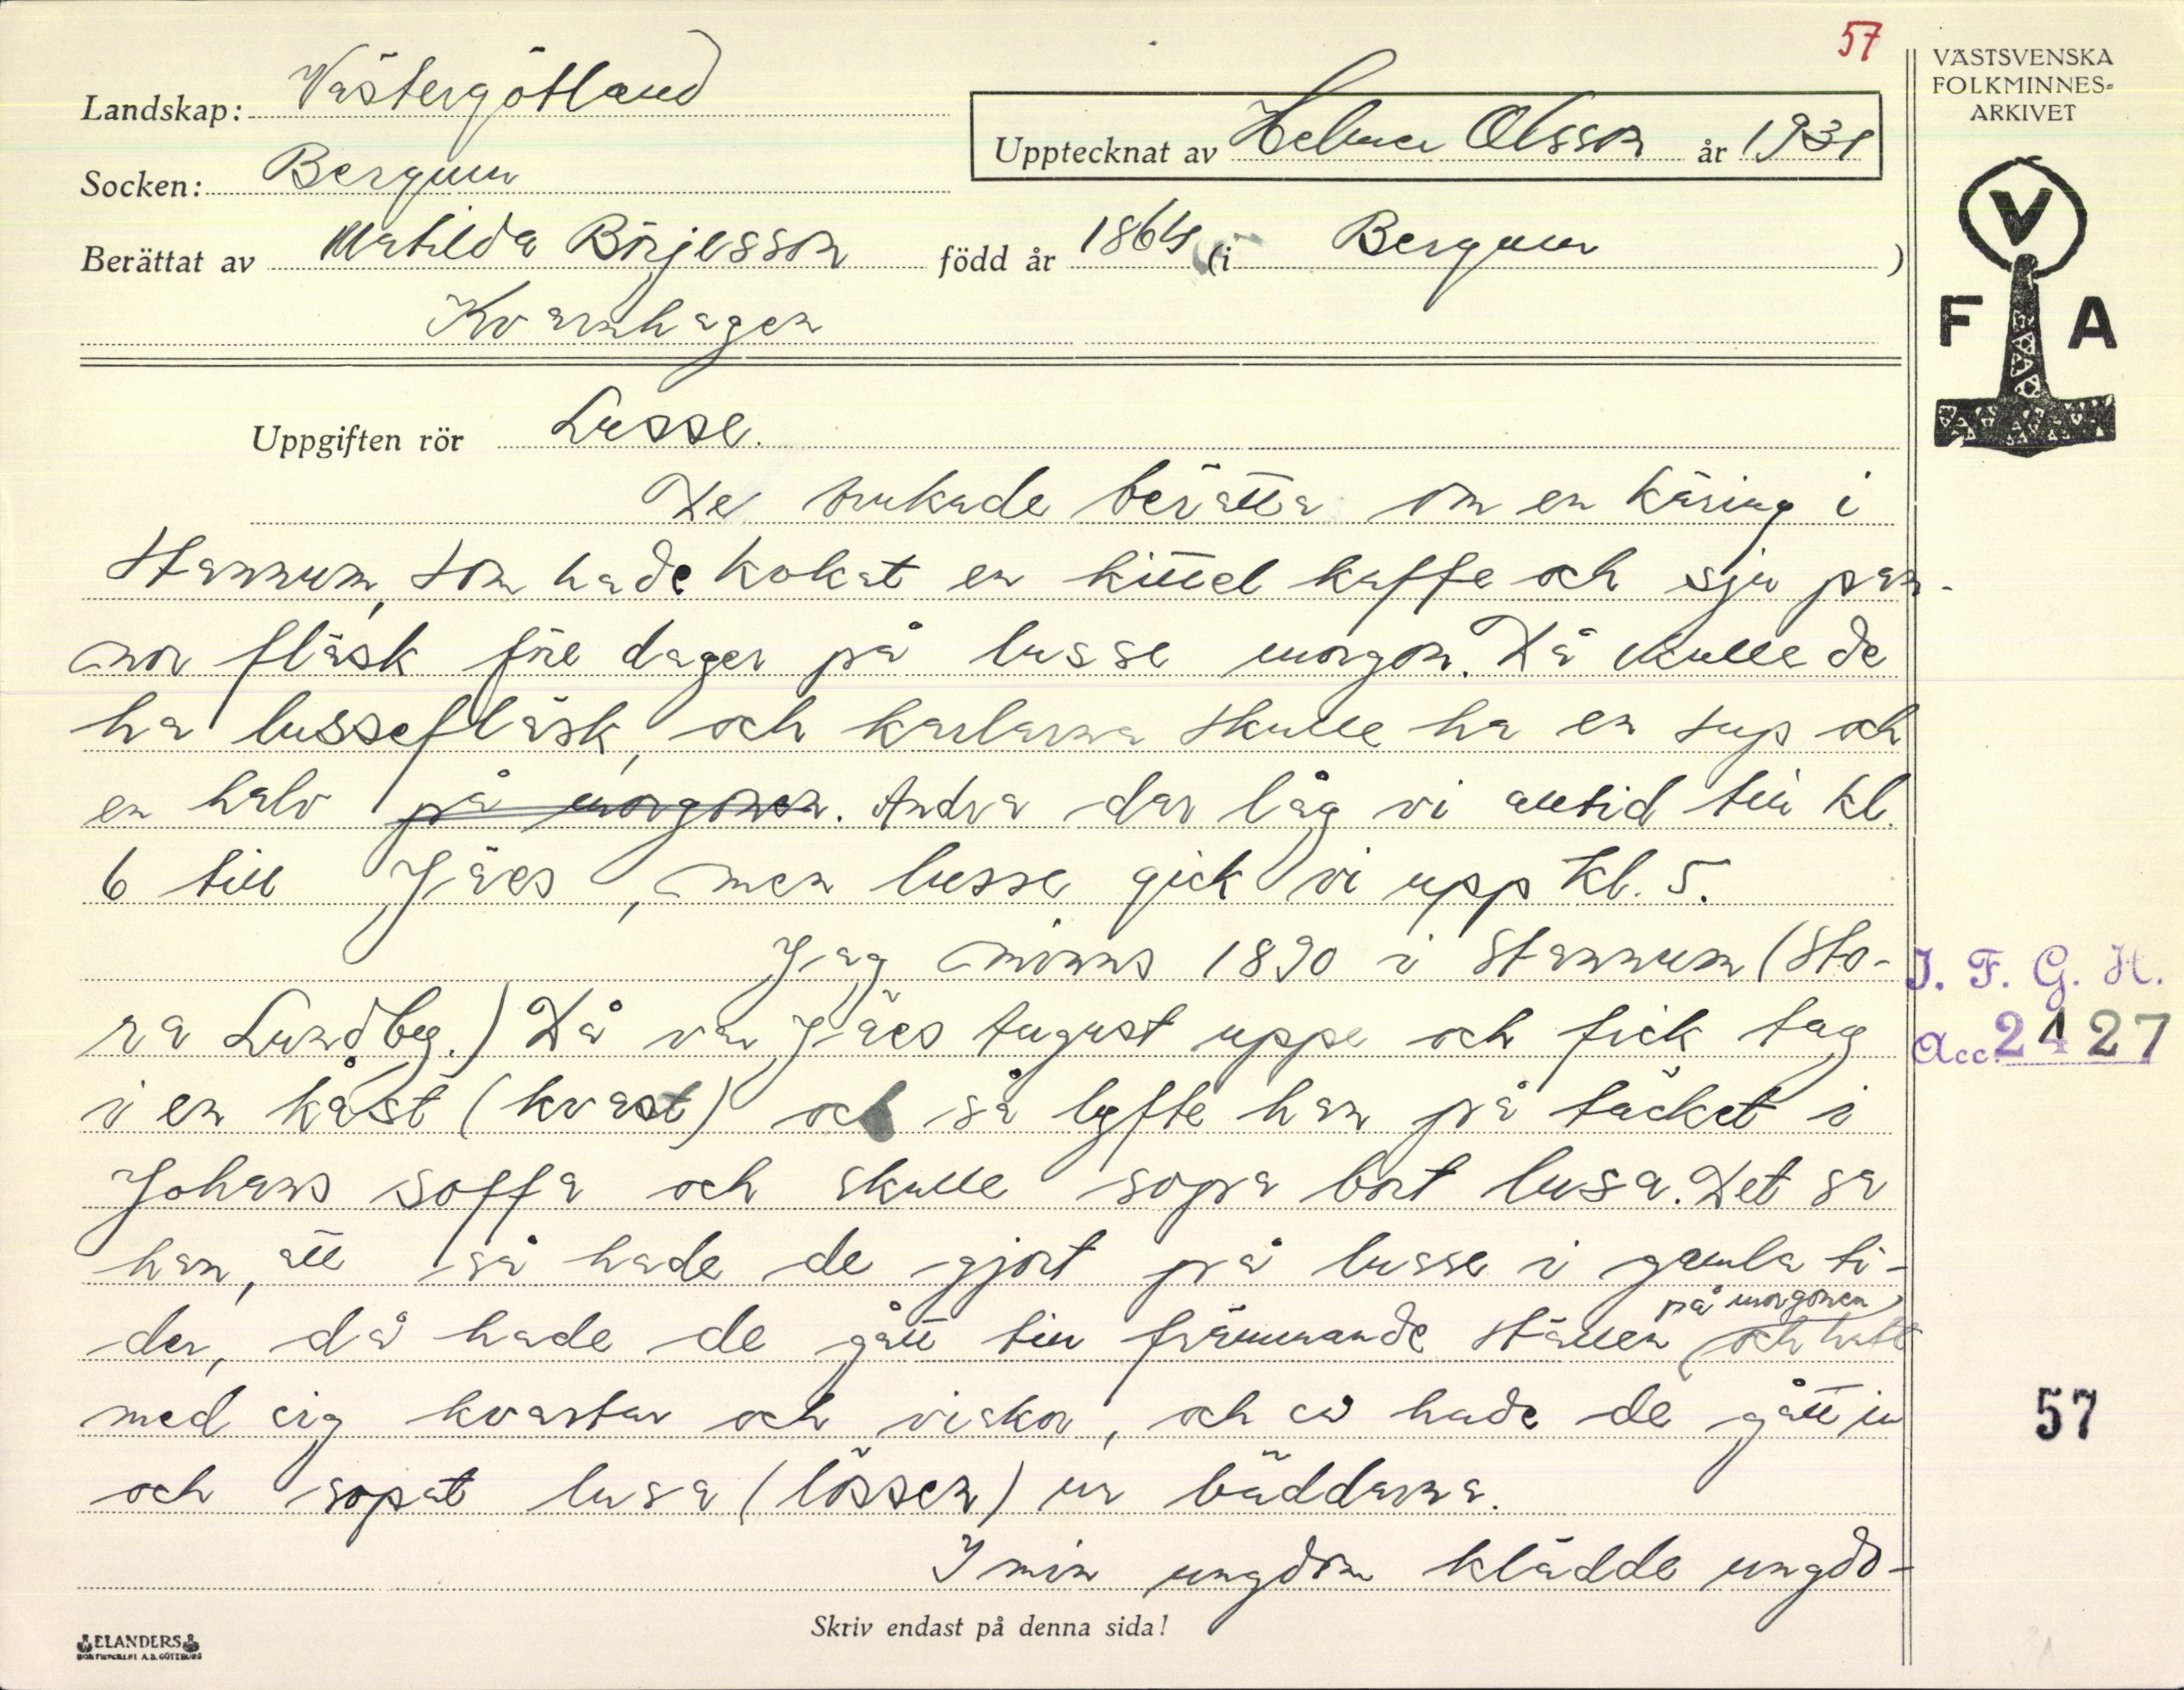 57
VÄSTSVENSKA
FOLKMINNES=
ARKIVET
Landskap: Västergötland
Upptecknat av Helmer Olsson år 1931
Socken: Bergum
Berättat av Matilda Börjesson född år 1864 (i Bergum)
Kvarnhagen
V
F A
Uppgiften rör Lusse.
De brukade berätta om en käring i
Stannum, som hade kokat en kittel kaffe och sju pan-
nor fläsk före dager på lusse morgon. Då skulle de
ha lussefläsk, och karlarna skulle ha en sup och
en halv på morgonen. Andra dar låg vi alltid till kl.
6 till Jäes, men lusse gick vi upp kl. 5.
Jag minns 1890 i Stannum (Sto-
ra Lundby.) Då var Jäes August uppe och fick tag
i en kåst (kvast) och så lyfte han på täcket i
Johans soffa och skulle sopa bort lusa. Det sa
han, att så hade de gjort på lusse i gamla ti-
der, då hade de gått till främmande ställen på morgonen och haft
med sig kvastar och viskor, och så hade de gått in
och sopat lusa (lössen) ur bäddarna.
I min ungdom klädde ungdo-
I. F. G. H.
Acc. 2427
57
Skriv endast på denna sida!
ELANDERS
BOKTRYCKERI A.B. GÖTEBORG